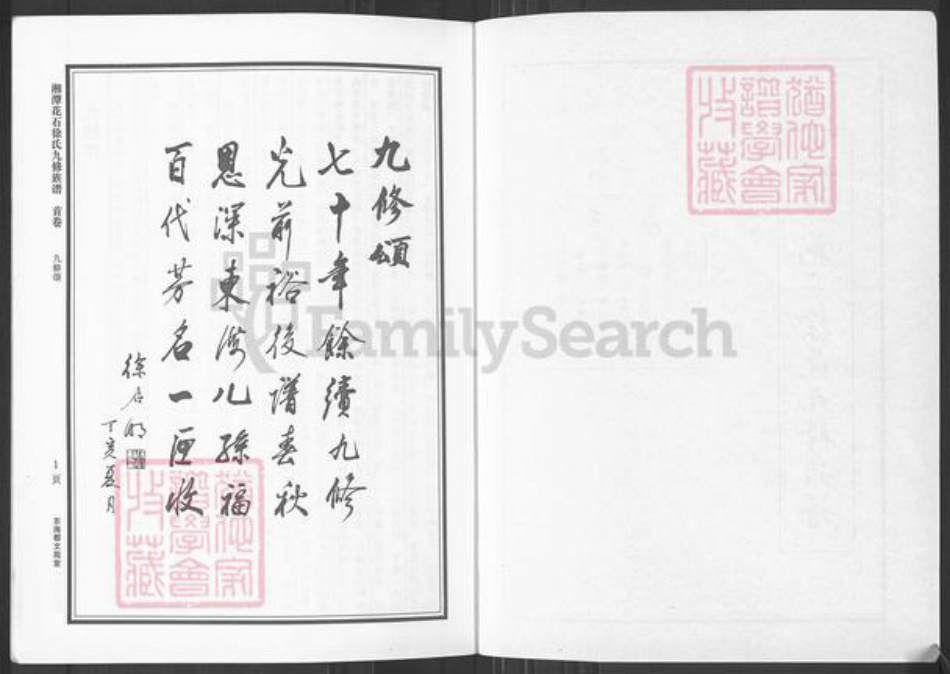 九修頌
七十年餘續九修
光前裕後譜春秋
恩深東海儿孫福
百代芳名一匣收
徐
丁亥夏月
湘潭花石徐氏九修族谱 首卷 九修颂
1 页
FamilySearch
猶他家
譜學會
收藏
猶他家
譜學會
收藏